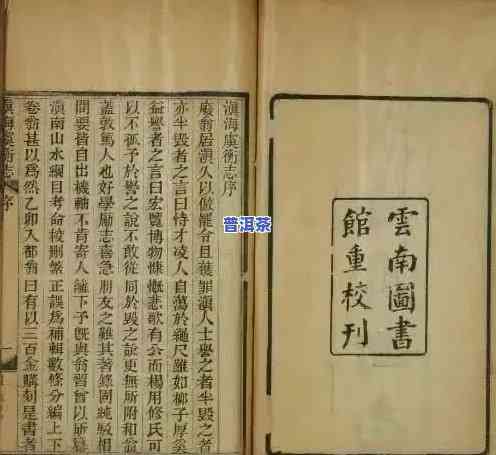 雲南圖書
館重校刊
滇海虞衡志序
廋翁居滇久以倣罷令且獲罪滇人士譽之者半毀之者
亦半毀者之言曰恃才凌人自蕩於繩尺雖如柳子厚奚
益譽者之言曰宏覽博物慷慨悲歌有公而楊用修氏可
以不孤予於譽之說不敢從同於毀之訟更無所附和翁
蓋敦篤人也好學勵志喜急朋友之難其著
間要皆自出機軸不肯寄人籬下予旣與翁習嘗以所
滇南山水綱目考命校刪繁正誤爲補輯數條分編上下
卷翁甚以爲然乙卯入都翁曰有以三百金購刻是書者
滇海虞衡志
序
一
普洱茶